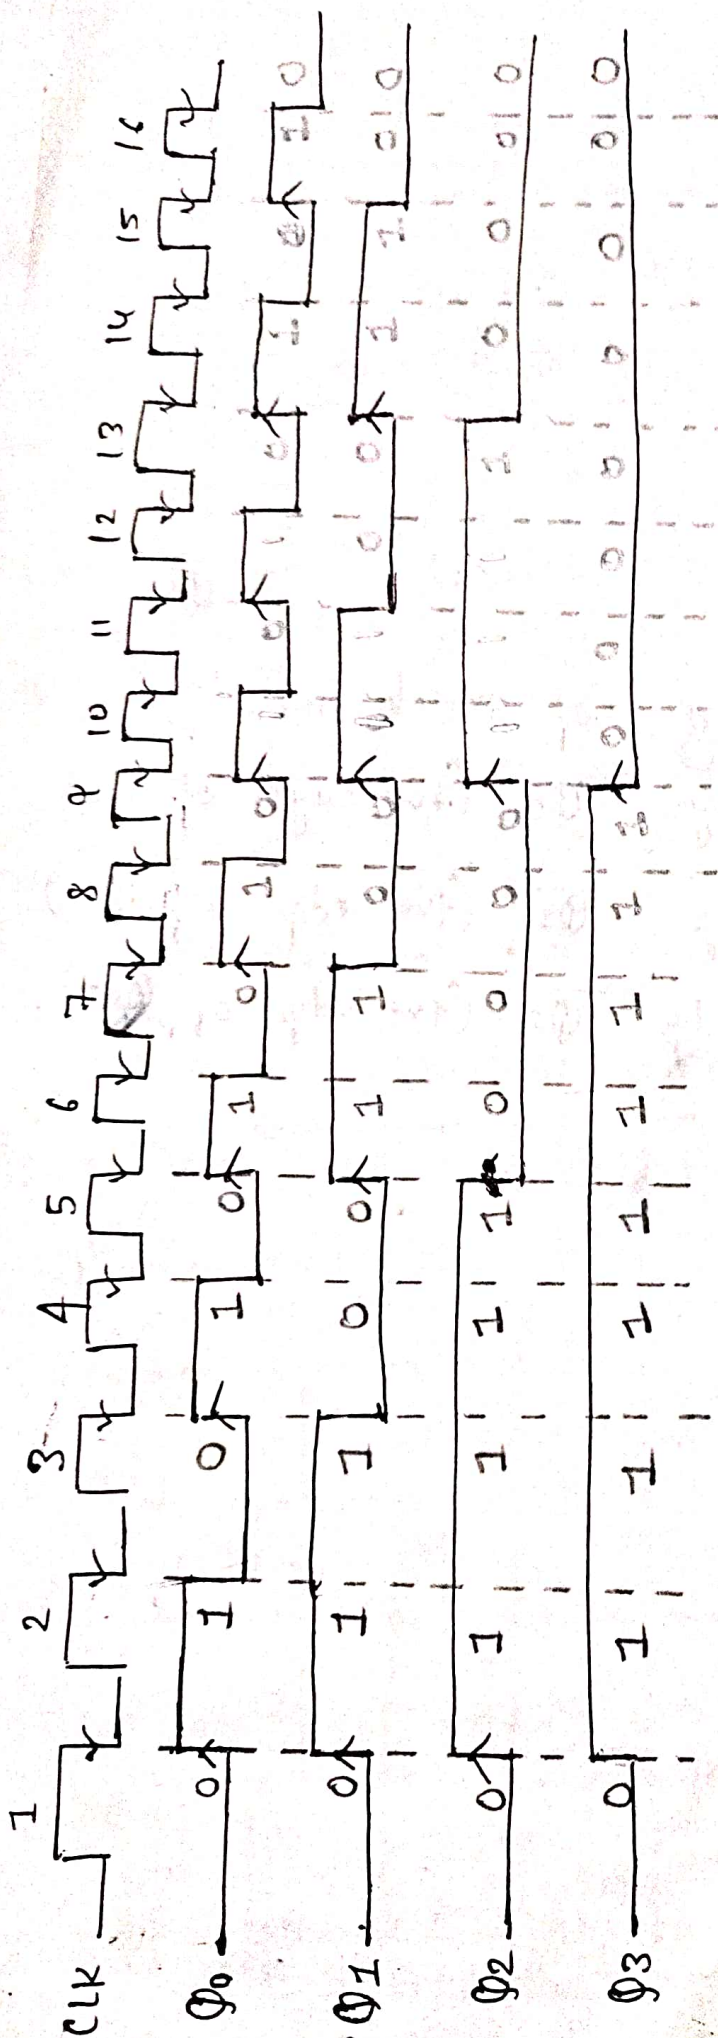 1 2 3 4 5 6 7 8 9 10 11 12 13 14 15 16
CLK
Q0 0 1 0 1 0 1 0 1 0 1 0 1 0 1 0 1 0
Q1 0 1 1 0 0 1 1 0 0 1 1 0 0 1 1 0 0
Q2 0 1 1 1 1 0 0 0 0 1 1 1 1 0 0 0 0
Q3 0 1 1 1 1 1 1 1 1 0 0 0 0 0 0 0 0